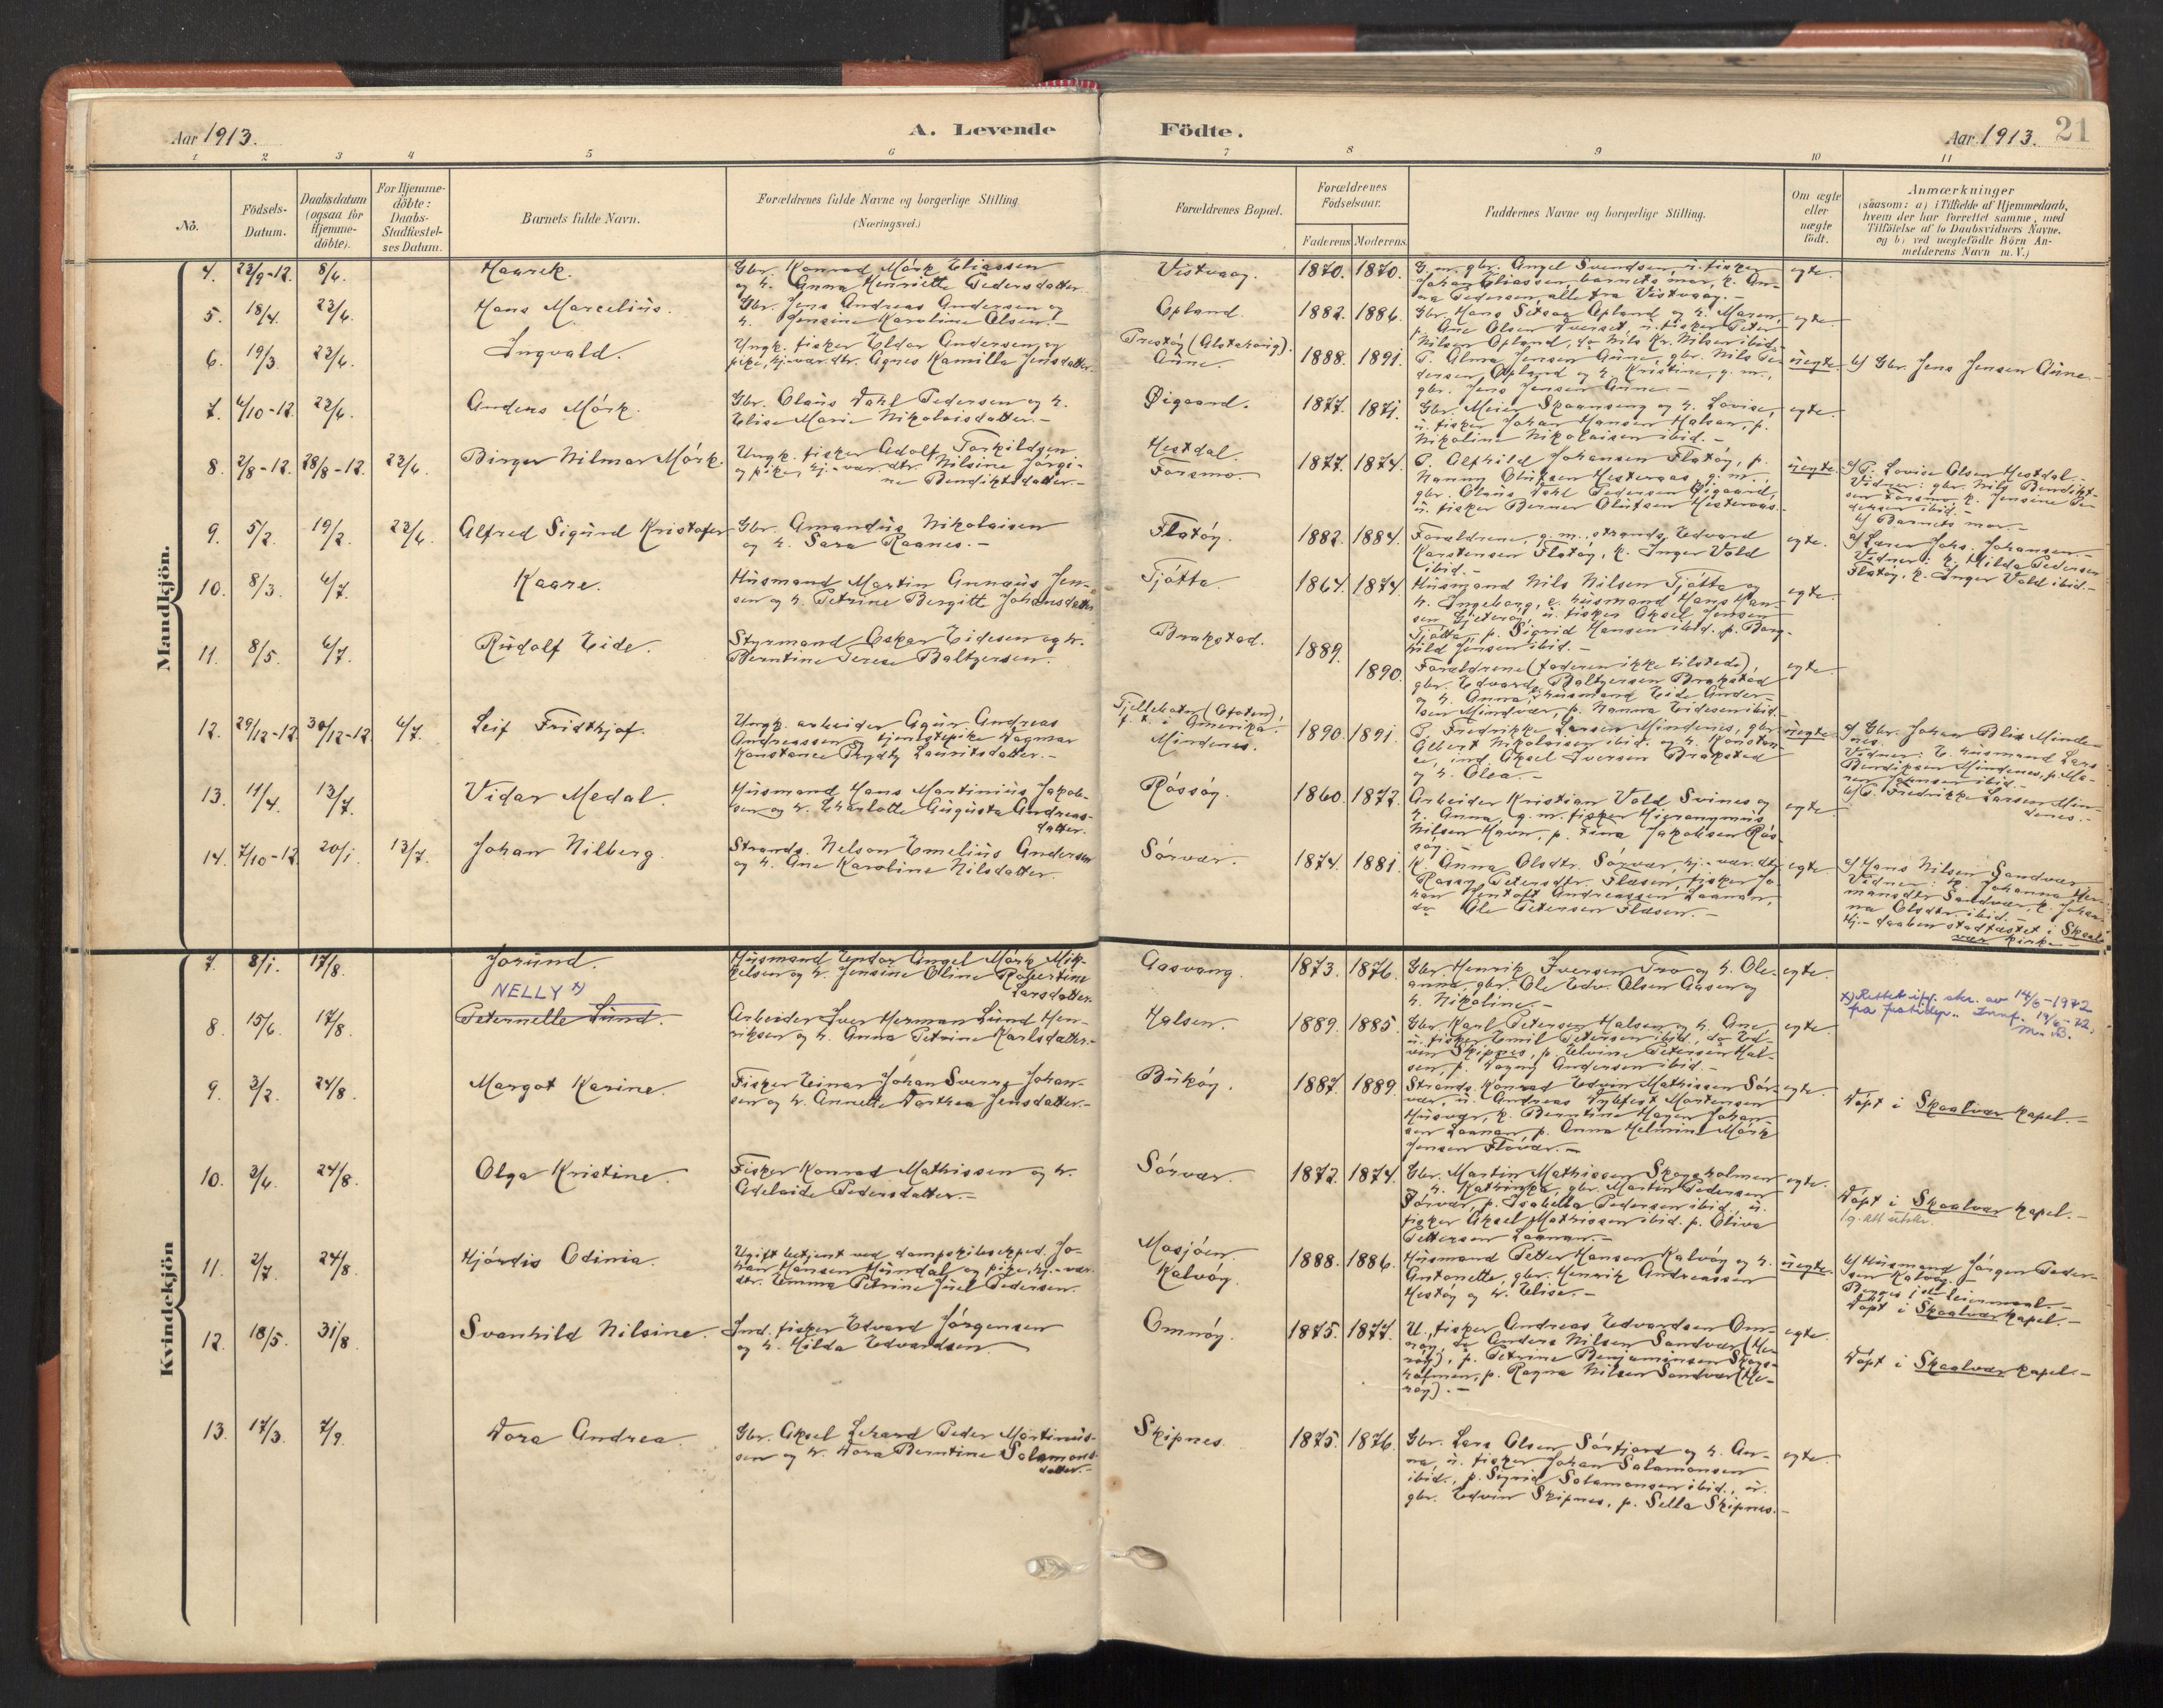 Aar 1913.
A. Levende Födte.
Aar 1913. 21
1 2 3 4 5 6 7 8 9 10 11
No.
Födsels-Datum.
Daabsdatum (ogsaa for Hjemme-döbte).
For Hjemme-döbte: Daabs-Stadfæstel-ses Datum.
Barnets fulde Navn.
Forældrenes fulde Navne og borgerlige Stilling (Næringsvei.)
Forældrenes Bopæl.
Forældrenes Födselsaar.
Faderens Moderens
Faddernes Navne og borgerlige Stilling.
Om ægte eller uægte födt.
Anmærkninger
(saasom: a) i Tilfælde af Hjemmedaab,
hvem der har forrettet samme, med
Tilföielse af to Daabsvidners Navne,
og b) ved uægtefödte Börn An-
melderens Navn m. V.)
Mandkjön.
4. 23/9-12. 8/6. Haarek.
Gbr. Konrad Mörk Eliassen
og h. Anna Henriette Pedersdatter.
Vistvaag. 1870. 1870.
G. m. gbr. Angel Svendsen, u. fisker
Johan Eliassen, barnets mor, k. An-
na Pedersen, alle fra Vistvaag.-
egte.
5. 18/4. 22/6. Hans Marcelius.
Gbr. Jens Andreas Andersen og
h. Jensine Karoline Olsen.-
Opland. 1882. 1886.
Gbr. Hans Sitsag Opland og h. Maren,
p. Ane Olsen Tverset, u. fisker Peter
Nilsen Opland, do Nils Kr. Nilsen ibid.-
egte.
6. 19/3. 22/6. Ingvald.
Ungk. fisker Eldor Andersen og
pike, hj.-vær. dtr. Agnes Kamilla Jensdatter.
Prestöy (Alstahaug).
Aune.
1888. 1891.
P. Alma Jensen Aune, gbr. Nils Pe-
dersen, Opland og h. Kristine, g. m.,
gbr. Jens Jensen Aune.-
uegte.
b/ Gbr. Jens Jensen Aune.-
7. 4/10-12. 22/6. Anders Mörk.
Gbr. Claus Dahl Pedersen og h.
Elise Marie Nikolaisdatter.-
Øigaard. 1877. 1871.
Gbr. Meier Skaanseng og h. Lovise,
u. fisker Johan Hansen Halsan, p.
Nikoline Nikolaisen ibid.-
egte.
8. 2/8-12. 28/8-12. 22/6. Birger Hilmar Mörk.
Ungk. fisker Adolf Torkildsen
og pike, hj.-vær. dtr. Nilsine Jörgi-
ne Bendiktsdatter.-
Hestdal.
Forsmo.
1877. 1874.
P. Alfhild Johansen Flatöy, p.
Nanny Olufsen Hesteraas, g. m.,
gbr. Claus Dahl Pedersen Øigaard,
u. fisker Berner Olufsen Hesteraas.
uegte.
a/ P. Lovise Olsen Hestdal.-
Vidner: gbr. Nils Bendikt-
sen Forsmo, k. Jensine Pe-
dersen ibid.-
b/ Barnets mor.-
9. 5/2. 19/2. 22/6. Alfred Sigurd Kristofer
Gbr. Amandus Nikolaisen
og h. Sara Raanes.-
Flatöy. 1882. 1884.
Forældrene, g. m. strands. Edvard
Karstensen Flatöy, k. Inger Vold
ibid.-
egte.
a/ Lærer Johs. Johansen.-
Vidner: k. Hilda Pedersen
Flatöy, k. Inger Vold ibid.-
10. 8/3. 6/7. Kaare.
Husmand Martin Gunnæus Jen-
sen og h. Petrine Bergitte Johansdatter
Tjötta. 1864. 1874.
Husmand Nils Nilsen Tjötta og
h. Ingeborg, e. husmand Hans Han-
sen Gjeteröy, u. fisker Aksel Jensen
Tjötta, p. Sigrid Hansen ibid. p. Borg-
hild Jensen ibid.-
egte.
11. 8/5. 6/7. Rudolf Eide.
Styrmand Oskar Eidesen og h.
Berntine Terese Baltzersen.
Brakstad. 1889. 1890.
Forældrene (faderen ikke tilstede),
gbr. Edvard Baltzersen Brakstad
og h. Anna, husmand Eide Ander-
sen Mindvær, p. Nanna Eidesen ibid.
egte
12. 29/12-12. 30/12-12. 6/7. Leif Fridthjof.
Ungk. arbeider Agur Andreas
Andreassen og tjenestepike Dagmar
Konstance Trydty Lauritsdatter.-
Fjellebotn (Ofoten),
f. t. i Amerika.
Mindenes.
1890. 1891.
P. Fredrikke Larsen Mindenes, gbr.
Albert Nikolaisen ibid. og h. Konstan-
se, ind. Aksel Iversen Brakstad
og h. Olea.-
uegte.
a/ Gbr. Johan Blix Minde-
nes.
Vidner: E. husmand Lars
Bendiksen Mindenes, p. Ma-
ren Johnsen ibid.-
b/ P. Fredrikke Larsen Min-
denes.-
13. 11/4. 13/7. Vidar Medal.
Husmand Hans Martinius Jakob-
sen og h. Charlotte Augusta Andreas-
datter.
Rössöy. 1860. 1872.
Arbeider Kristian Vold Svines og
h. Anna, g. m. fisker Hieronymus
Nilsen Havn, p. Fina Jakobsen Rös-
söy.-
egte.
14. 7/10-12. 20/1. 13/7. Johan Hilberg.
Strands. Nelson Emelius Andersen
og h. Ane Karoline Nilsdatter.
Sörvær. 1874. 1881.
K. Anna Olsdtr. Sörvær, hj.-vær. dtr.
Rassy Petersdtr. Flæsen, fisker Jo-
han Hentoft Andreassen Laanan,
do Ole Petersen Flæsen.-
egte
a/ Hans Nilsen Sandvær.
Vidner: K. Johanna Her-
mansdtr Sandvær, k. Johan-
na Olsdtr. ibid.-
Hj.-daaben stadfæstet i Skaal-
vær kirke.-
Kvindekjön
7. 8/1. 17/8. Jorund.
Husmand Endor Angel Mörk Mik-
kelsen og h. Jensine Oline Robertine
Larsdatter.
Aasvang. 1873. 1876.
Gbr. Henrik Iversen Tro og h. Ole-
anna, gbr. Ole Edv. Olsen Aasen og
h. Nikoline.-
egte.
NELLY x)
8. 15/6. 17/8. Peternelle Lund.
Arbeider Iver Herman Lund Hen-
riksen og h. Anna Petrine Karlsdatter.-
Halsen. 1889. 1885.
Gbr. Karl Petersen Halsen og h. Ane,
u. fisker Emil Petersen ibid., do Ed-
vin Skipnes, p. Elvine Petersen Hal-
sen, p. Dagny Andersen ibid.-
egte.
x) Rettet ifg. skr. av 14/6-1972
fra just.dep.. Innf. 19/6-72.
9. 3/2. 24/8. Margot Karine.
Fisker Einar Johan Sverre Johan-
sen og h. Annette Dorthea Jensdatter.-
Buköy. 1887. 1889.
Strands. Konrad Edvin Mathissen Sör-
vær, u. Andreas Dybfest Mortensen
Husvær, k. Berntine Hagen Johan-
sen Laanan, p. Anna Helmine Mörk
Jensen Flövær.-
egte.
Döpt i Skaalvær kapel.-
10. 3/6. 24/8. Olga Kristine.
Fisker Konrad Mathissen og h.
Adelaide Pedersdatter.-
Sörvær. 1872. 1874.
Gbr. Martin Mathissen Skogsholmen
og h. Kathinka, gbr. Martin Pedersen
Sörvær, p. Isabella Pedersen ibid., u.
fisker Aksel Mathissen ibid. p. Oliva
Pettersen Laanan.-
egte.
Döpt i Skaalvær kapel.-
lg. att utskr.
11. 2/7. 24/8. Hjördis Odinia.
Ugift betjent ved dampskibseksped. Jo-
han Hansen Hundal og pike, hj.-vær.
dtr. Emma Petrine Juel Pedersen.
Mosjöen
Kalvöy.
1888. 1886.
Husmand Petter Hansen Kalvöy og h.
Antonette, gbr. Henrik Andreassen
Hestöy og h. Elise.-
uegte.
b/ Husmand Jörgen Peder-
sen Kalvöy.-
Begges 1ste leiermaal.-
Döpt i Skaalvær kapel.-
12. 18/5. 31/8. Svanhild Nilsine.
Ind. fisker Edvard Jörgensen
og h. Hilda Edvardsen
Omnöy. 1875. 1877.
U. fisker Andreas Edvardsen Om-
nöy, do Anders Nilsen Sandvær (He-
röy), p. Petrine Benjaminsen Skogs-
holmen, p. Ragna Nilsen Sandvær (He-
röy).-
egte.
Döpt i Skaalvær kapel.-
13. 17/3. 7/9. Dora Andrea.
Gbr. Aksel Lerard Peder Martinus-
sen og h. Dora Berntine Salamons-
datter.-
Skipnes. 1875. 1876.
Gbr. Lars Olsen Sörfjord og h. An-
na, u. fisker Johan Salamonsen
ibid., p. Sigrid Salamonsen ibid., u.
gbr. Edvin Skipnes, p. Sella Skipnes.-
egte.